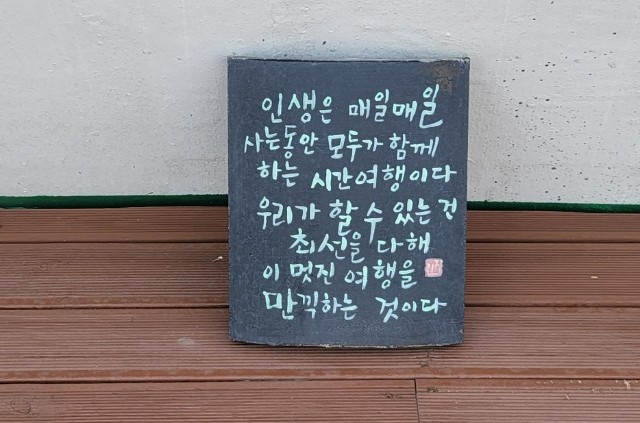 인생은 매일매일
사는동안 모두가 함께
하는 시간여행이다
우리가 할 수 있는 건
최선을 다해
이 멋진 여행을
만끽하는 것이다